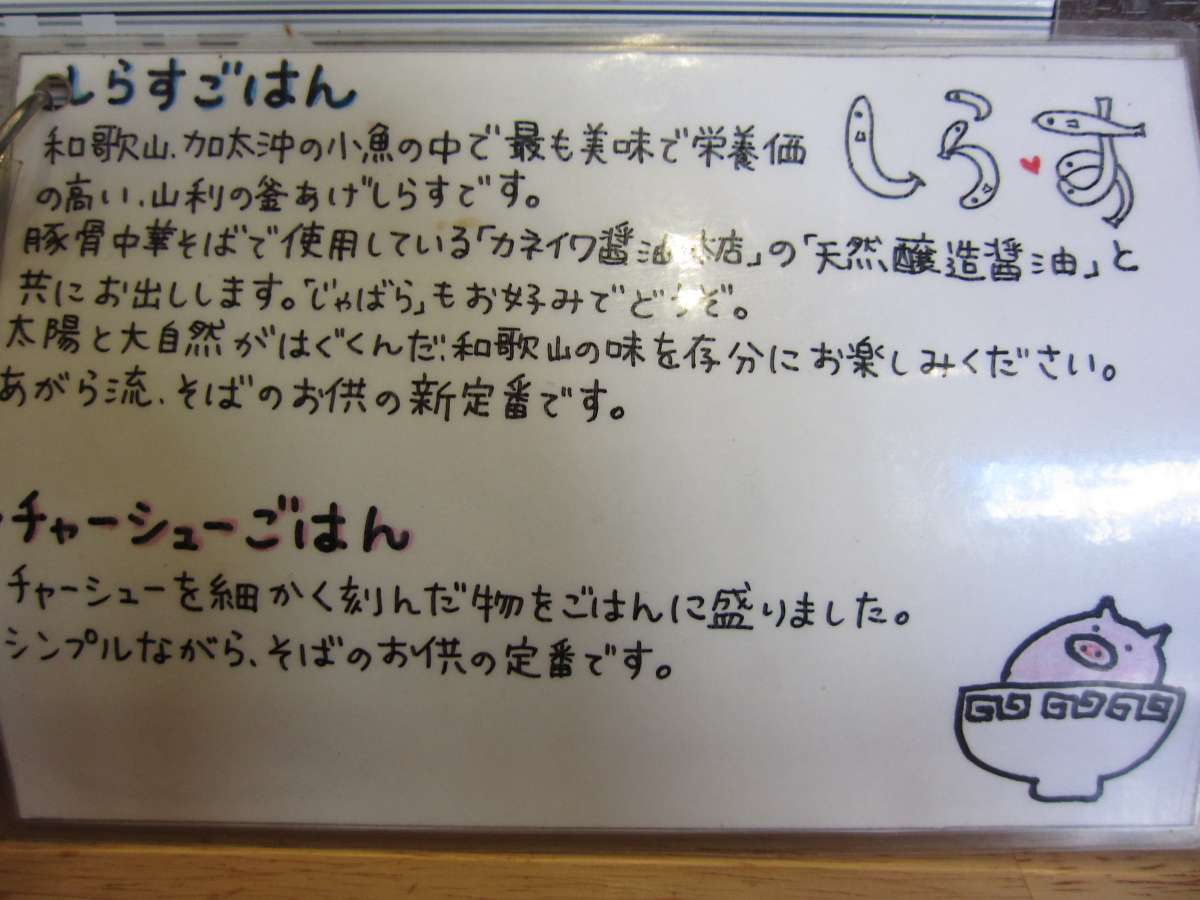 しらすごはん
しらす
和歌山、加太沖の小魚の中で最も美味で栄養価
の高い、山利の釜あげしらすです。
豚骨中華そばで使用している「カネイワ醤油本店」の「天然醸造醤油」と
共にお出しします。「じゃばら」もお好みでどうぞ。
太陽と大自然がはぐくんだ、和歌山の味を存分にお楽しみください。
あがら流、そばのお供の新定番です。
・チャーシューごはん
チャーシューを細かく刻んだ物をごはんに盛りました。
シンプルながら、そばのお供の定番です。